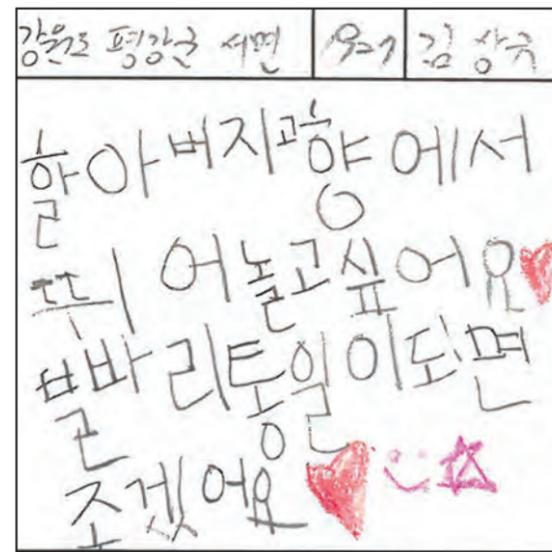 강원도 평강군 서면 1927 김상국
할아버지고향에서
뛰어놀고싶어요
빨바리통일이되면
조겠어요